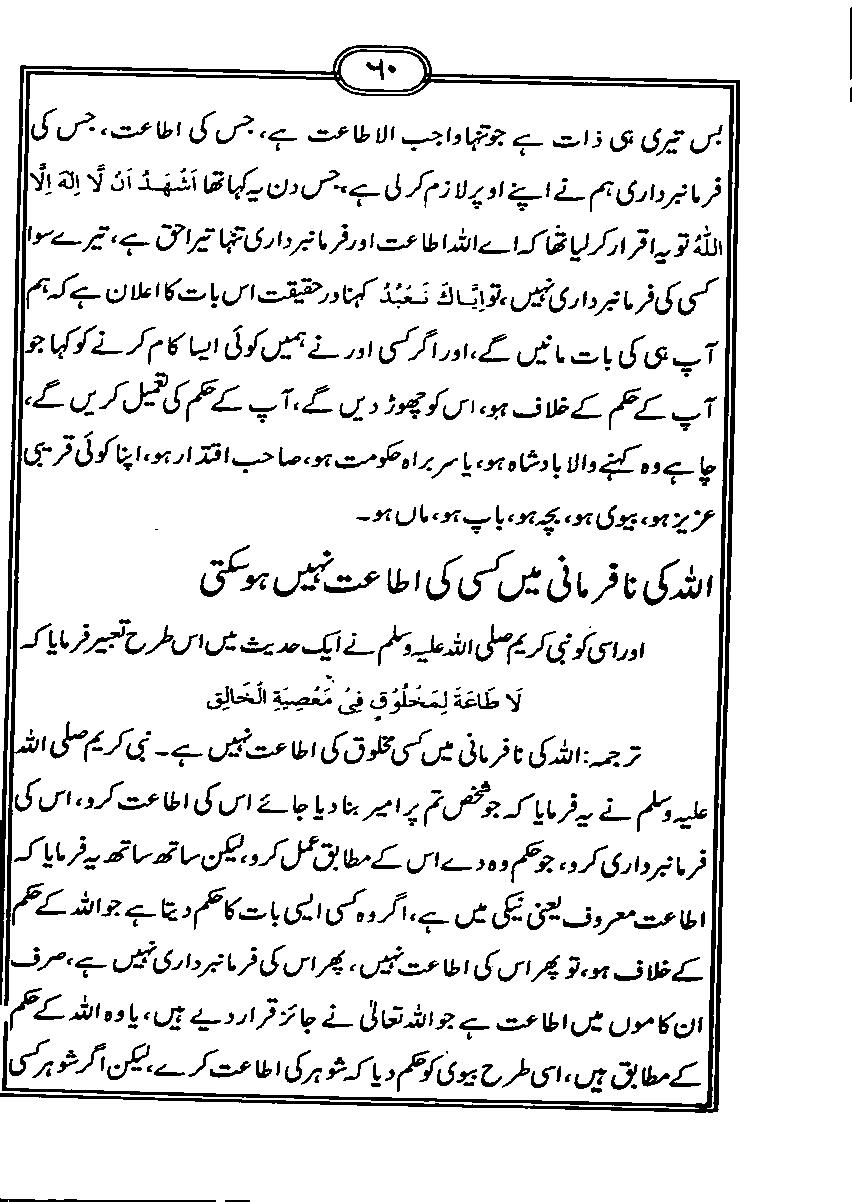 ۶۰
بس تیری ہی ذات ہے جو تنہا واجب الاطاعت ہے، جس کی اطاعت، جس کی
فرمانبرداری ہم نے اپنے اوپر لازم کرلی ہے، جس دن یہ کہا تھا اَشْھَدُ اَنْ لَّا اِلٰهَ اِلَّا
اللّٰهُ تو یہ اقرار کرلیا تھا کہ اے اللہ اطاعت اور فرمانبرداری تنہا تیرا حق ہے، تیرے سوا
کسی کی فرمانبرداری نہیں، تو اِیَّاكَ نَعْبُدُ کہنا درحقیقت اس بات کا اعلان ہے کہ ہم
آپ ہی کی بات مانیں گے، اور اگر کسی اور نے ہمیں کوئی ایسا کام کرنے کو کہا جو
آپ کے حکم کے خلاف ہو، اس کو چھوڑ دیں گے، آپ کے حکم کی تعمیل کریں گے،
چاہے وہ کہنے والا بادشاہ ہو، یا سربراہ حکومت ہو، صاحب اقتدار ہو، اپنا کوئی قریبی
عزیز ہو، بیوی ہو، بچہ ہو، باپ ہو، ماں ہو۔
اللہ کی نافرمانی میں کسی کی اطاعت نہیں ہوسکتی
اور اسی کو نبی کریم صلی اللہ علیہ وسلم نے ایک حدیث میں اس طرح تعبیر فرمایا کہ
لَا طَاعَةَ لِمَخْلُوْقٍ فِیْ مَعْصِیَةِ الْخَالِقِ
ترجمہ: اللہ کی نافرمانی میں کسی مخلوق کی اطاعت نہیں ہے۔ نبی کریم صلی اللہ
علیہ وسلم نے یہ فرمایا کہ جو شخص تم پر امیر بنا دیا جائے اس کی اطاعت کرو، اس کی
فرمانبرداری کرو، جو حکم وہ دے اس کے مطابق عمل کرو، لیکن ساتھ ساتھ یہ فرمایا کہ
اطاعت معروف یعنی نیکی میں ہے، اگر وہ کسی ایسی بات کا حکم دیتا ہے جو اللہ کے حکم
کے خلاف ہو، تو پھر اس کی اطاعت نہیں، پھر اس کی فرمانبرداری نہیں ہے، صرف
ان کاموں میں اطاعت ہے جو اللہ تعالیٰ نے جائز قرار دیے ہیں، یا وہ اللہ کے حکم
کے مطابق ہیں، اسی طرح بیوی کو حکم دیا کہ شوہر کی اطاعت کرے، لیکن اگر شوہر کسی